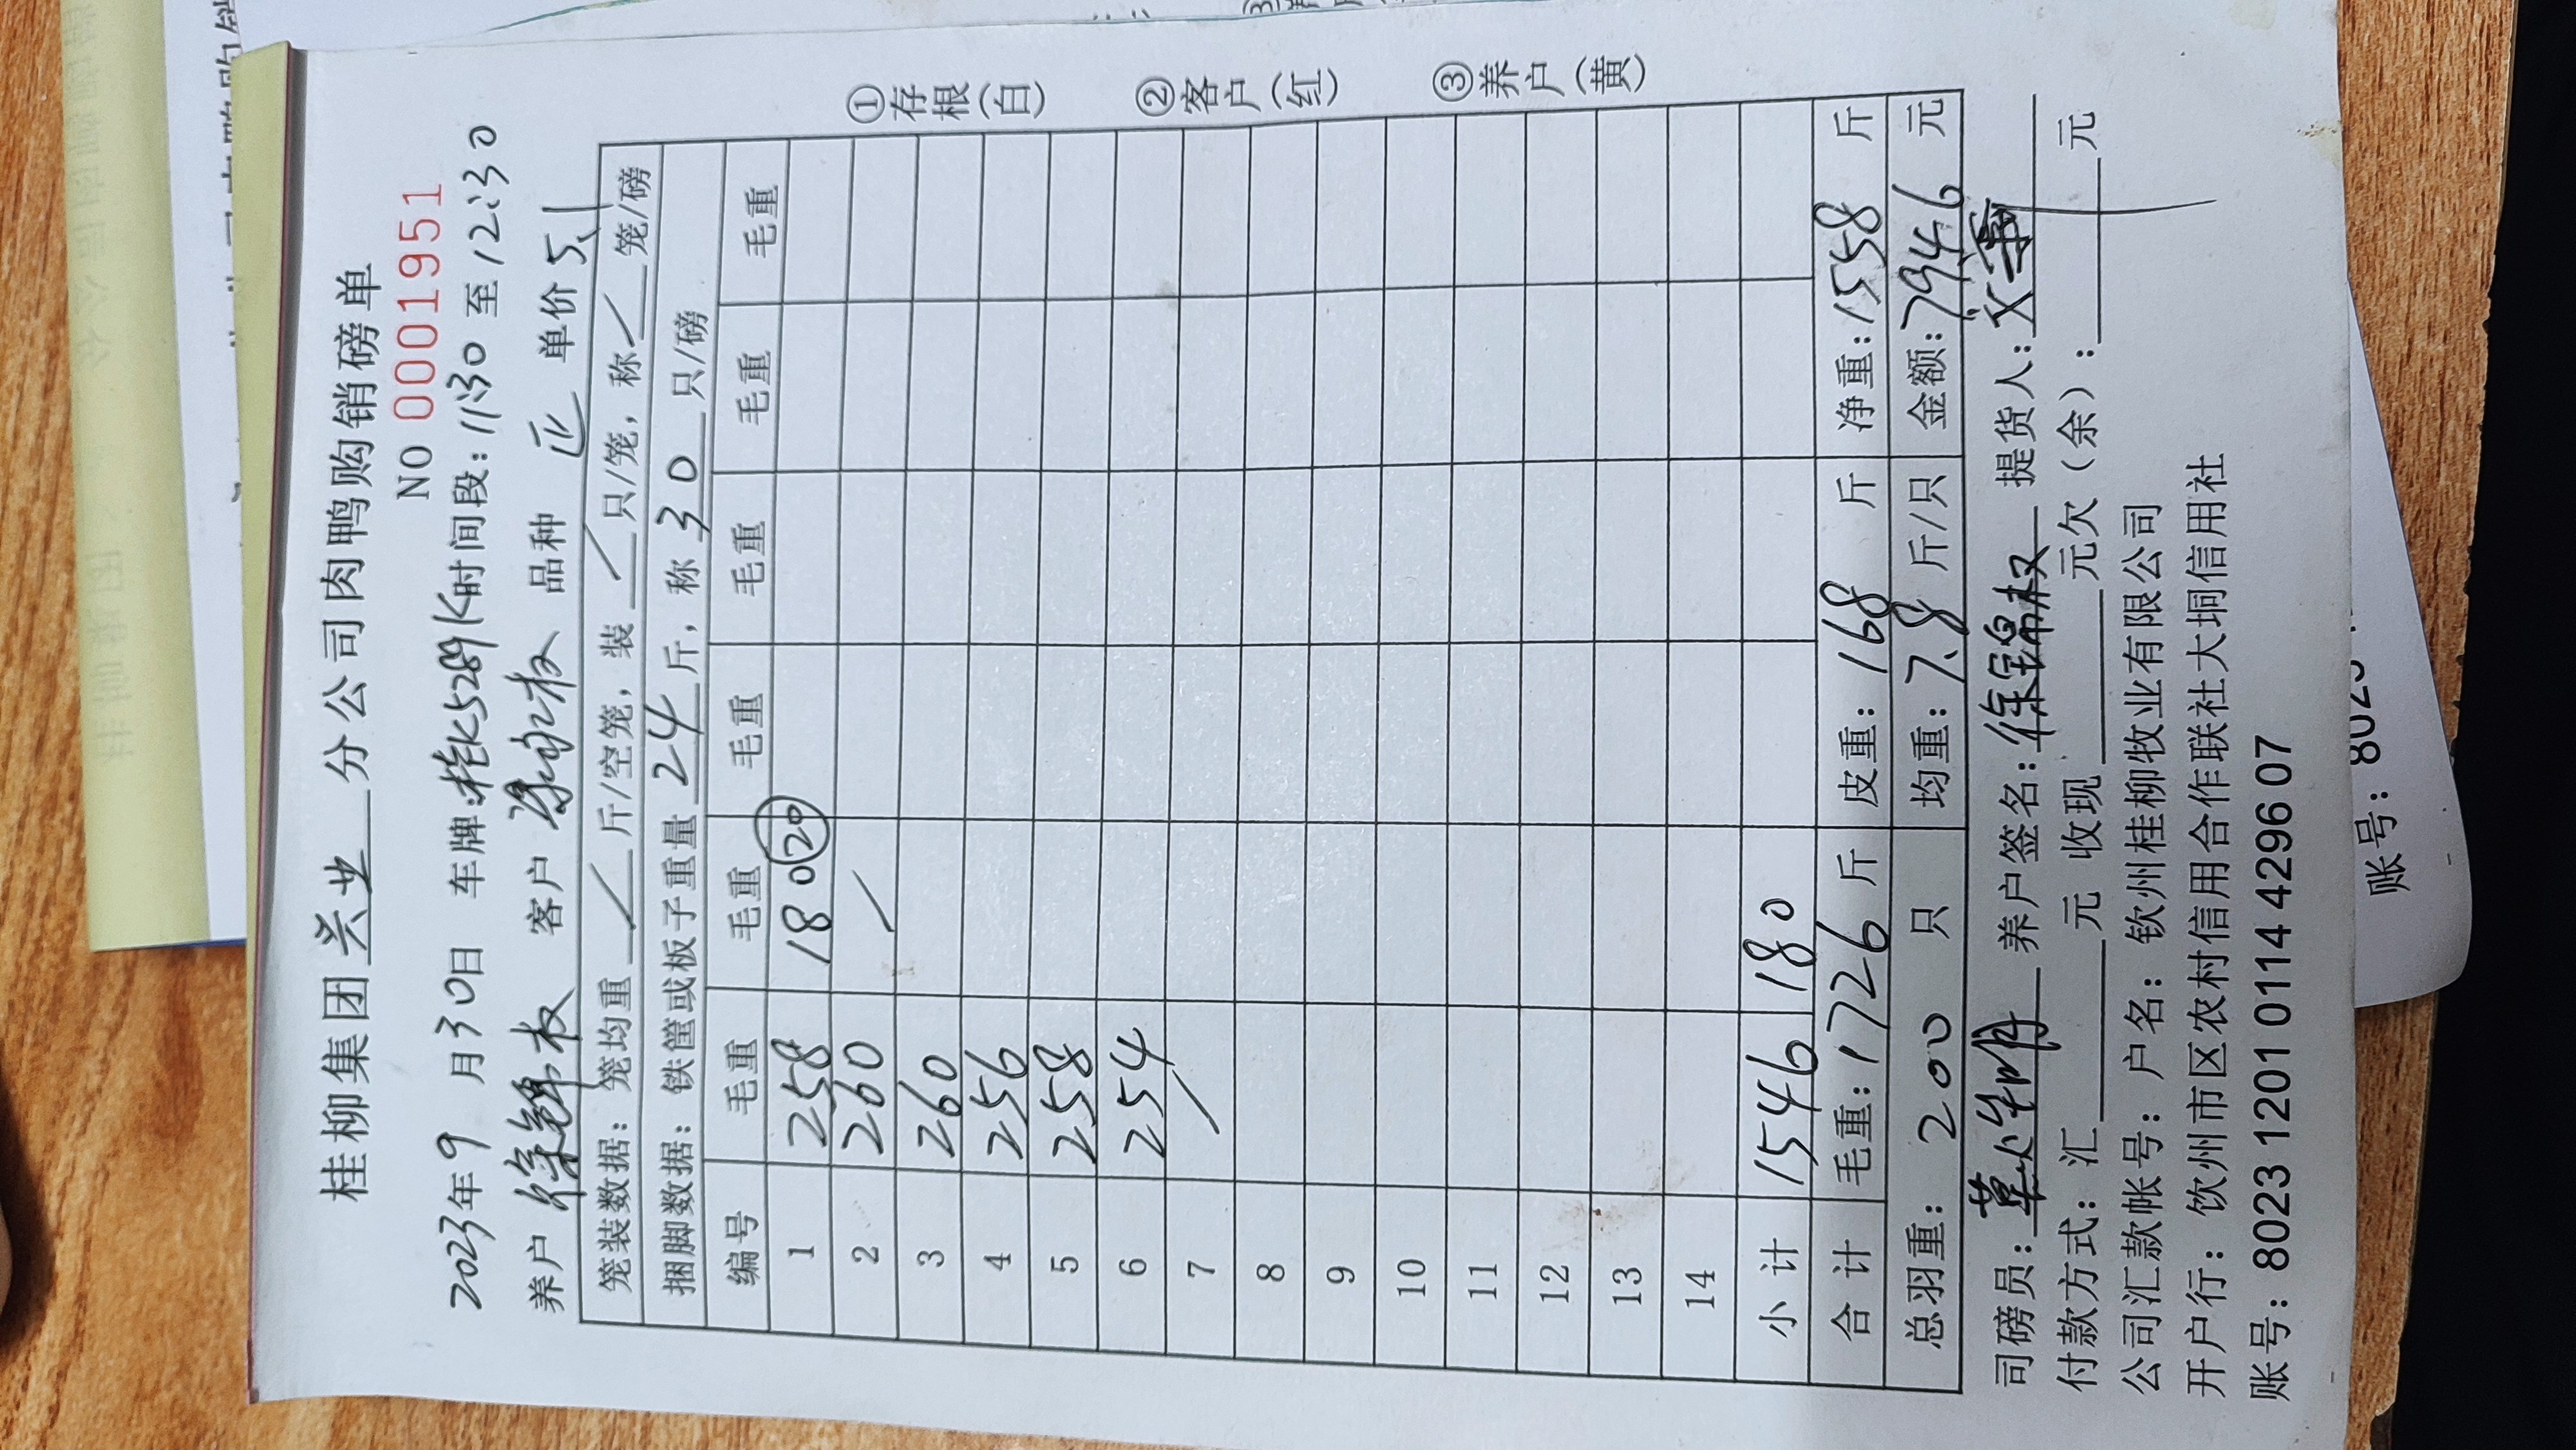 桂柳集团兴业分公司肉鸭购销磅单
NO 0001951
2023年9月30日 车牌:桂K5289K时间段:11:30至12:30
养户 徐锦权 客户 永权 品种 正 单价5.1
笼装数据:笼均重 / 斤/空笼,装 / 只/笼,称 / 笼/磅
捆脚数据:铁筐或板子重量 24 斤,称 30 只/磅
编号 毛重 毛重 毛重 毛重 毛重 毛重
1 258 180 20
2 260 /
3 260
4 256
5 258
6 254
7 /
8
9
10
11
12
13
14
小计 1546 180
合计 毛重:1726斤 皮重:168斤 净重:1558斤
总羽重:200只 均重:7.8斤/只 金额:7946元
司磅员: 养户签名:徐锦权 提货人:
付款方式:汇 元 收现 元欠(余): 元
公司汇款帐号:户名:钦州桂柳牧业有限公司
开户行:钦州市区农村信用合作联社大垌信用社
账号:8023 1201 0114 4296 07
①存根(白)
②客户(红)
③养户(黄)
账号:8023